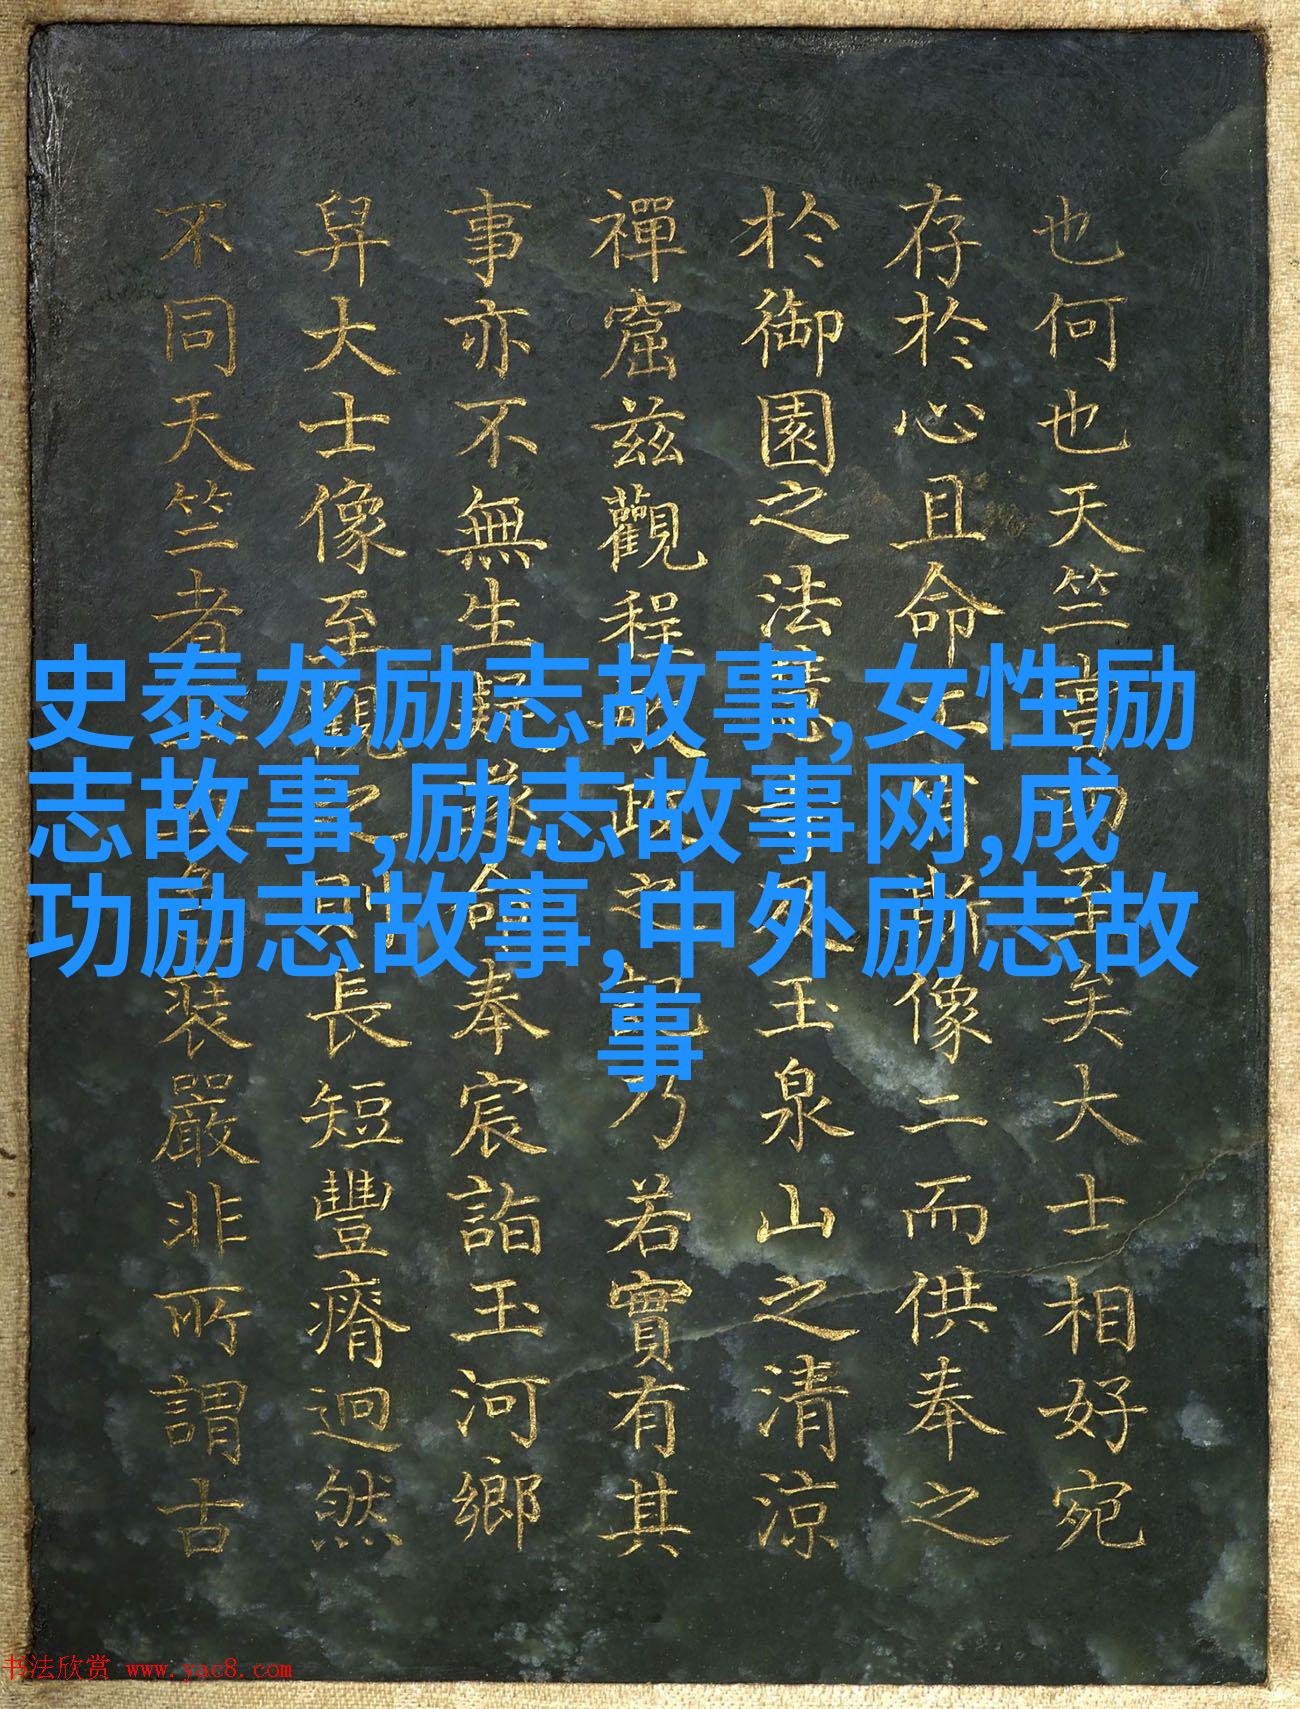 也何也天竺至矣大士相好宛
存於心且命工肖斯像二而供奉之
於御園之法慧寺及玉泉山之清涼
禪窟茲觀程敏政之記乃若實有其
事亦不無生疑遂命奉宸詣玉河鄉
舁大士像至觀之則長短豐瘠迥然
不同天竺者裝嚴非所謂古
史泰龙励志故事,女性励
志故事,励志故事网,成
功励志故事,中外励志故
事
书法欣赏 www.yac8.com